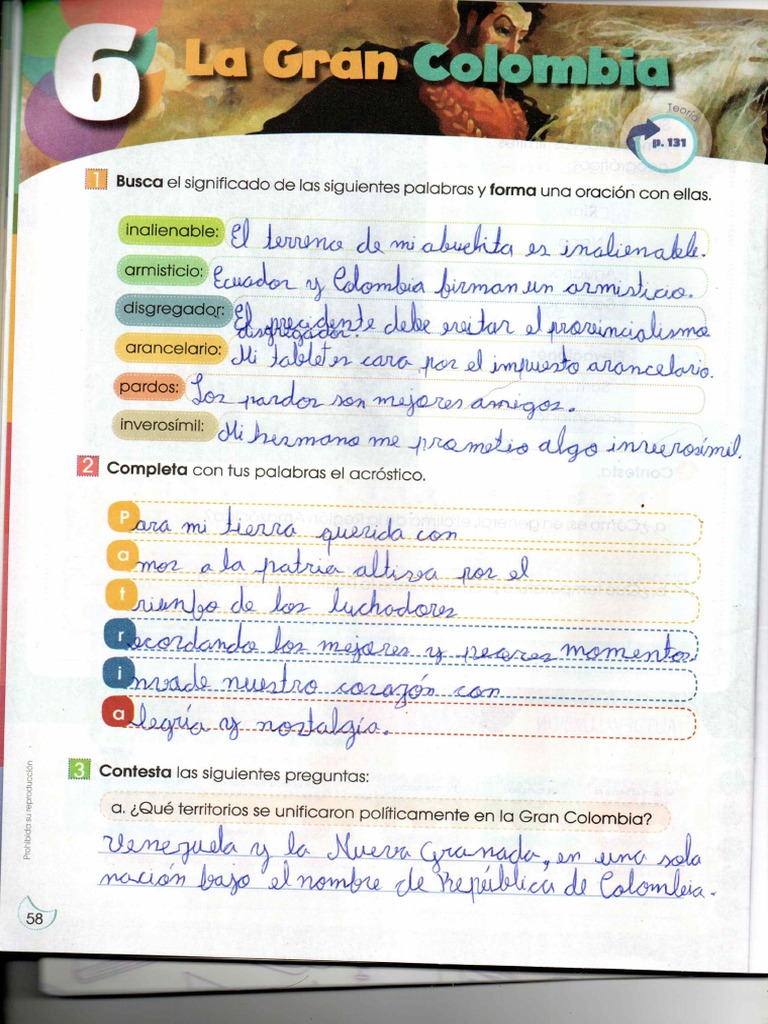 6 La Gran Colombia
Teoría
p. 131
1 Busca el significado de las siguientes palabras y forma una oración con ellas.
inalienable: El terreno de mi abuelita es inalienable.
armisticio: Ecuador y Colombia firman un armisticio.
disgregador: El precidente debe evitar el provincialismo
disgregador.
arancelario: Mi tablet es cara por el impuesto arancelario.
pardos: Los pardos son mejores amigos.
inverosímil: Mi hermano me prometio algo inverosímil.
2 Completa con tus palabras el acróstico.
Para mi tierra querida con
amor a la patria altiva por el
triunfo de los luchadores
recordando los mejores y peores momentos
invade nuestro corazón con
alegría y nostalgia.
3 Contesta las siguientes preguntas:
a. ¿Qué territorios se unificaron políticamente en la Gran Colombia?
Venezuela y la Nueva Granada, en una sola
nación bajo el nombre de República de Colombia.
Prohibida su reproducción
58